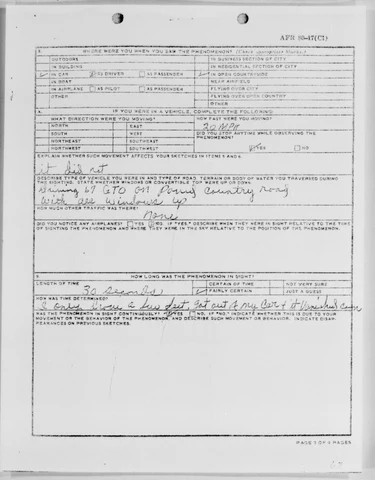 AFR 80-17(C1)
3. WHERE WERE YOU WHEN YOU SAW THE PHENOMENON?
OUTDOORS IN BUSINESS SECTION OF CITY
IN BUILDING IN RESIDENTIAL SECTION OF CITY
IN CAR AS DRIVER AS PASSENGER IN OPEN COUNTRYSIDE
IN BOAT NEAR AIRFIELD
IN AIRPLANE AS PILOT AS PASSENGER FLYING OVER CITY
OTHER FLYING OVER OPEN COUNTRY
OTHER
4. IF YOU WERE IN A VEHICLE, COMPLETE THE FOLLOWING
WHAT DIRECTION WERE YOU MOVING? HOW FAST WERE YOU MOVING?
NORTH EAST
SOUTH WEST DID YOU STOP ANYTIME WHILE OBSERVING THE
NORTHEAST SOUTHEAST PHENOMENON?
NORTHWEST SOUTHWEST YES NO
EXPLAIN WHETHER SUCH MOVEMENT AFFECTS YOUR SKETCHES IN ITEMS 5 AND 6.
it did not
DESCRIBE TYPE OF VEHICLE YOU WERE IN AND TYPE OF ROAD, TERRAIN OR BODY OF WATER YOU TRAVERSED DURING
THE SIGHTING. STATE WHETHER WINDOWS OR CONVERTIBLE TOP WERE UP OR DOWN.
67 GTO on Country road
with all windows up
HOW MUCH OTHER TRAFFIC WAS THERE?
None
DID YOU NOTICE ANY AIRPLANES? YES NO. IF "YES," DESCRIBE WHEN THEY WERE IN SIGHT RELATIVE TO THE TIME
OF SIGHTING THE PHENOMENON AND WHERE THEY WERE IN THE SKY RELATIVE TO THE POSITION OF THE PHENOMENON.
HOW LONG WAS THE PHENOMENON IN SIGHT?
LENGTH OF TIME CERTAIN OF TIME NOT VERY SURE
30 seconds FAIRLY CERTAIN JUST A GUESS
HOW WAS TIME DETERMINED?
I only drove a few feet, got out of my car & it vanished
WAS THE PHENOMENON IN SIGHT CONTINUOUSLY? YES NO. IF "NO," INDICATE WHETHER THIS IS DUE TO YOUR
MOVEMENT OR THE BEHAVIOR OF THE PHENOMENON, AND DESCRIBE SUCH MOVEMENT OR BEHAVIOR. INDICATE DISAP-
PEARANCES ON PREVIOUS SKETCHES.